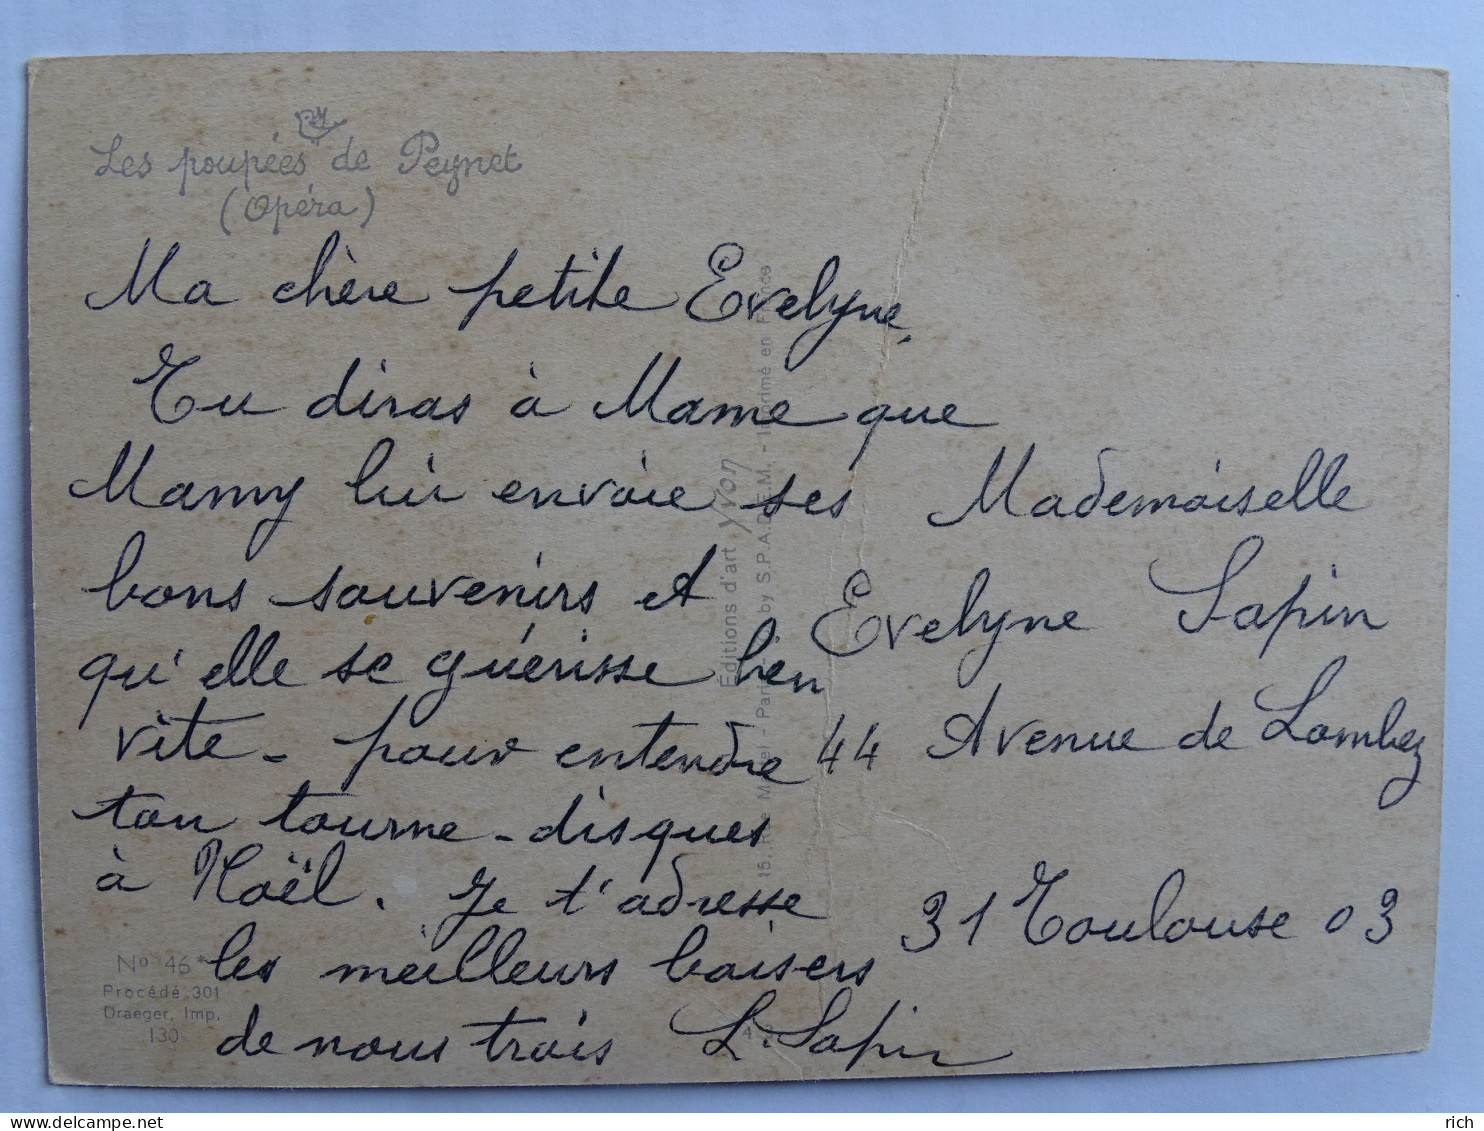 Les poupées de Peynet
(Opéra)
Ma chère petite Evelyne,
Tu diras à Mame que
Mamy lui envoie ses
bons souvenirs et
qu'elle se guérisse bien
vite - pour entendre
ton tourne-disques
à Noël. Je t'adresse
les meilleurs baisers
de nous trois L. Sapin
Mademoiselle
Evelyne Sapin
44 Avenue de Lombez
31 Toulouse 03
Éditions d'art Yvon
15, - Paris by S.P.A.D.E.M. - Imprimé en France
No 46*
Procédé 301
Draeger, Imp.
130
Delcampe.net
rich